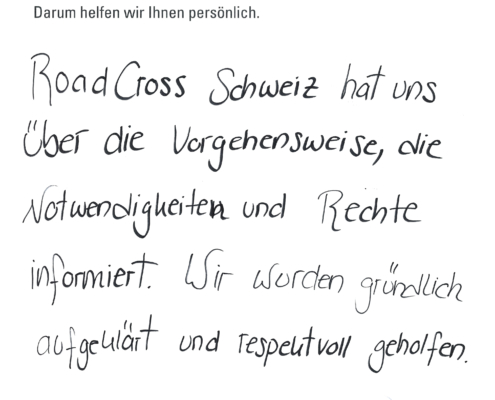 Darum helfen wir Ihnen persönlich.
RoadCross Schweiz hat uns
über die Vorgehensweise, die
Notwendigkeiten und Rechte
informiert. Wir wurden gründlich
aufgeklärt und respektvoll geholfen.